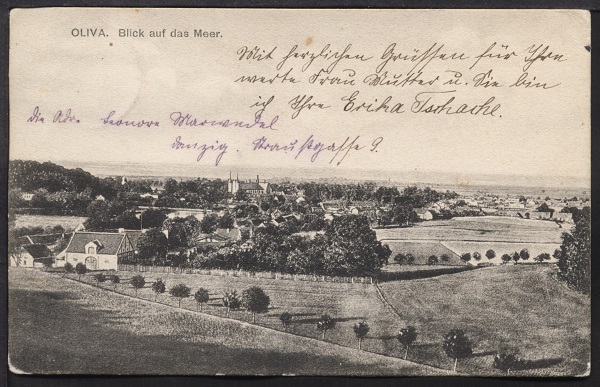 OLIVA. Blick auf das Meer.
Mit herzlichen Grüssen für Ihre
werte Frau Mutter u. Sie bin
ich Ihre Erika Tschache.
die Adr. Leonore Marwedel
Danzig. Straußgasse 9.